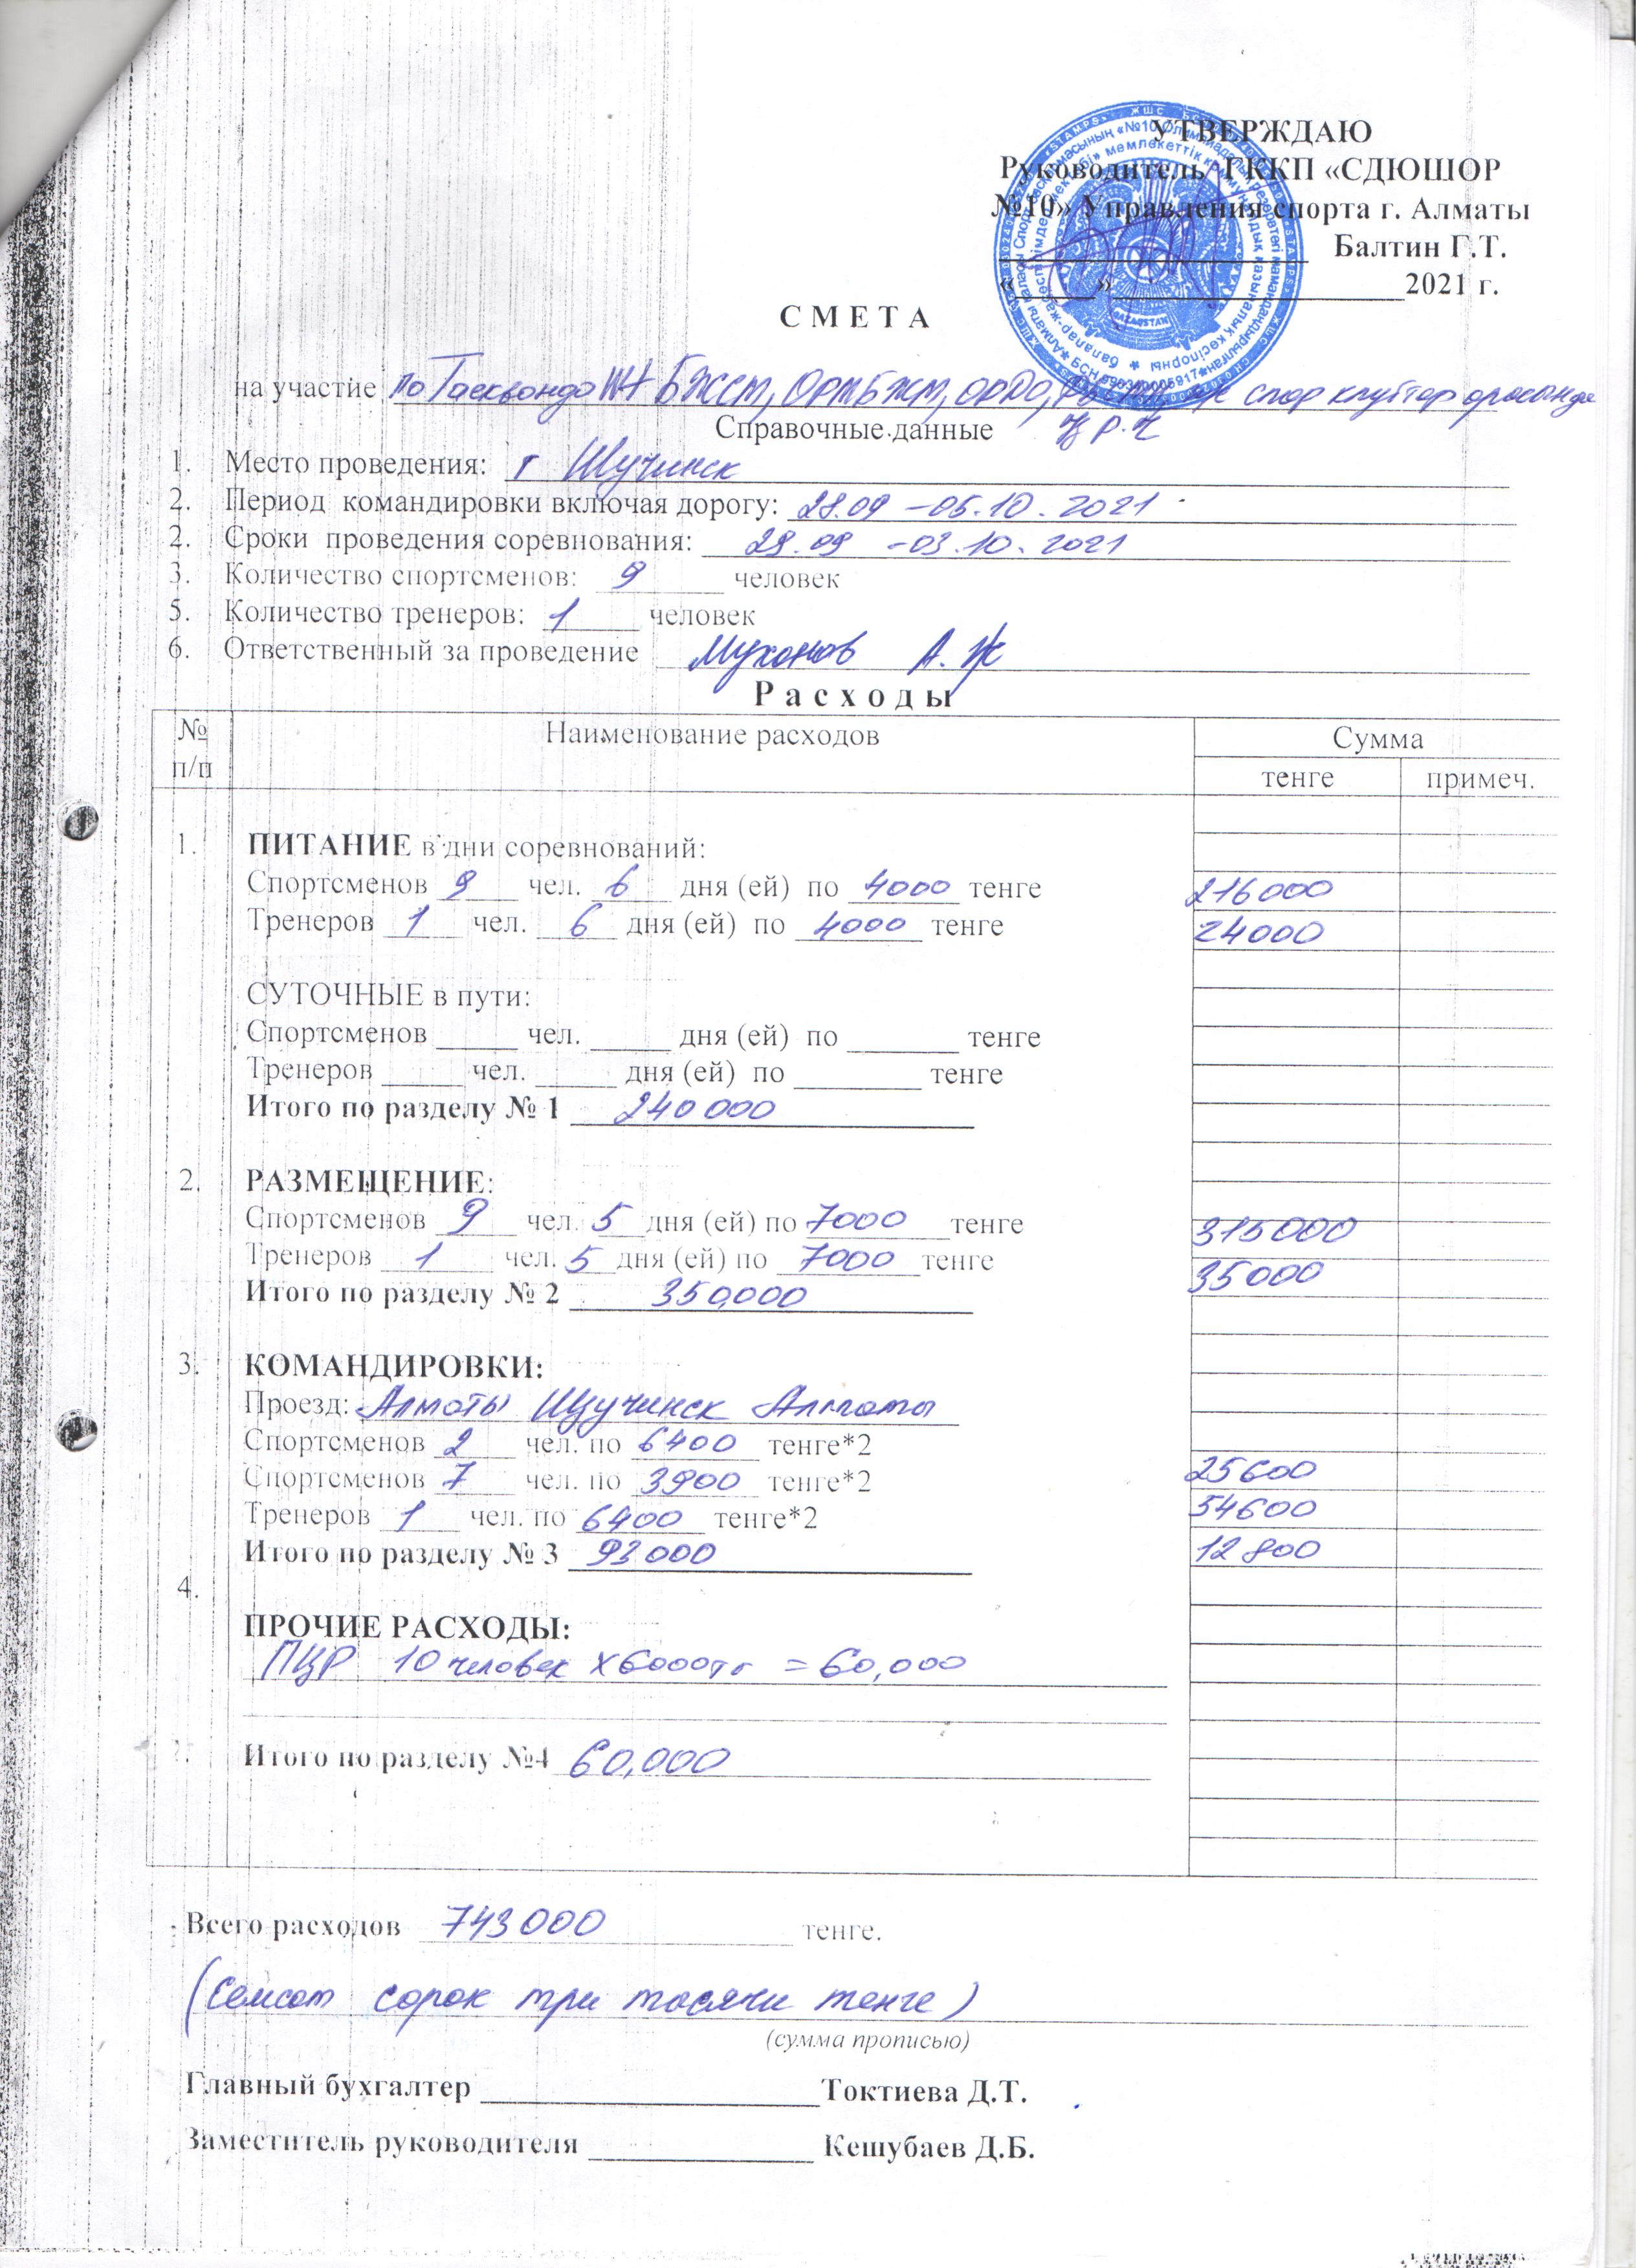 УТВЕРЖДАЮ
Руководитель ГККП «СДЮШОР
№10» Управления спорта г. Алматы
Балтин Г.Т.
«_____»____________________2021 г.
С М Е Т А
на участие по Таеквондо WT БЖССМ, ОРМБЖМ, ОРДО, спор клубтар арасында
Справочные данные Ч Р.К
1. Место проведения: г Щучинск
2. Период командировки включая дорогу: 28.09 - 05.10. 2021
2. Сроки проведения соревнования: 29.09 - 03.10. 2021
3. Количество спортсменов: 9 человек
5. Количество тренеров: 1 человек
6. Ответственный за проведение Муханов А.Ж
Р а с х о д ы
№ п/п Наименование расходов Сумма
тенге примеч.
1. ПИТАНИЕ в дни соревнований:
Спортсменов 9 чел. 6 дня (ей) по 4000 тенге 216000
Тренеров 1 чел. 6 дня (ей) по 4000 тенге 24000
СУТОЧНЫЕ в пути:
Спортсменов ______ чел. ______ дня (ей) по ________ тенге
Тренеров ______ чел. ______ дня (ей) по _________ тенге
Итого по разделу № 1 240 000
2. РАЗМЕЩЕНИЕ:
Спортсменов 9 чел. 5 дня (ей) по 7000 тенге 315000
Тренеров 1 чел. 5 дня (ей) по 7000 тенге 35000
Итого по разделу № 2 350,000
3. КОМАНДИРОВКИ:
Проезд: Алматы Щучинск Алматы
Спортсменов 2 чел. по 6400 тенге*2 25600
Спортсменов 7 чел. по 3900 тенге*2 54600
Тренеров 1 чел. по 6400 тенге*2 12800
Итого по разделу № 3 93000
4.
ПРОЧИЕ РАСХОДЫ:
ПЦР 10 человек х6000тг = 60,000
Итого по разделу №4 60,000
Всего расходов 743000 тенге.
(Семсот сорок три тысячи тенге)
(сумма прописью)
Главный бухгалтер ______________________ Токтиева Д.Т.
Заместитель руководителя _______________ Кешубаев Д.Б.